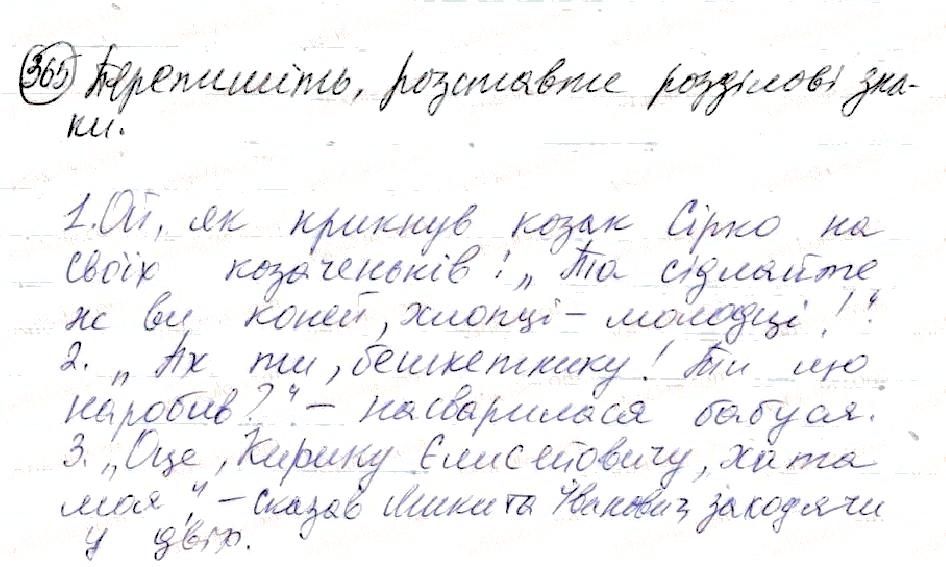 365 Перепишіть, розставте розділові зна-
ки.
1. Ой, як крикнув козак Сірко на
своїх козаченьків: „Та сідлайте
ж ви коней, хлопці – молодці!“
2. „Ах ти, бешкетнику! Ти що
наробив?“ – насварилася бабуся.
3. „Оце, Кирику Єлисейовичу, хата
моя“, – сказав Микита Іванович, заходячи
у двір.